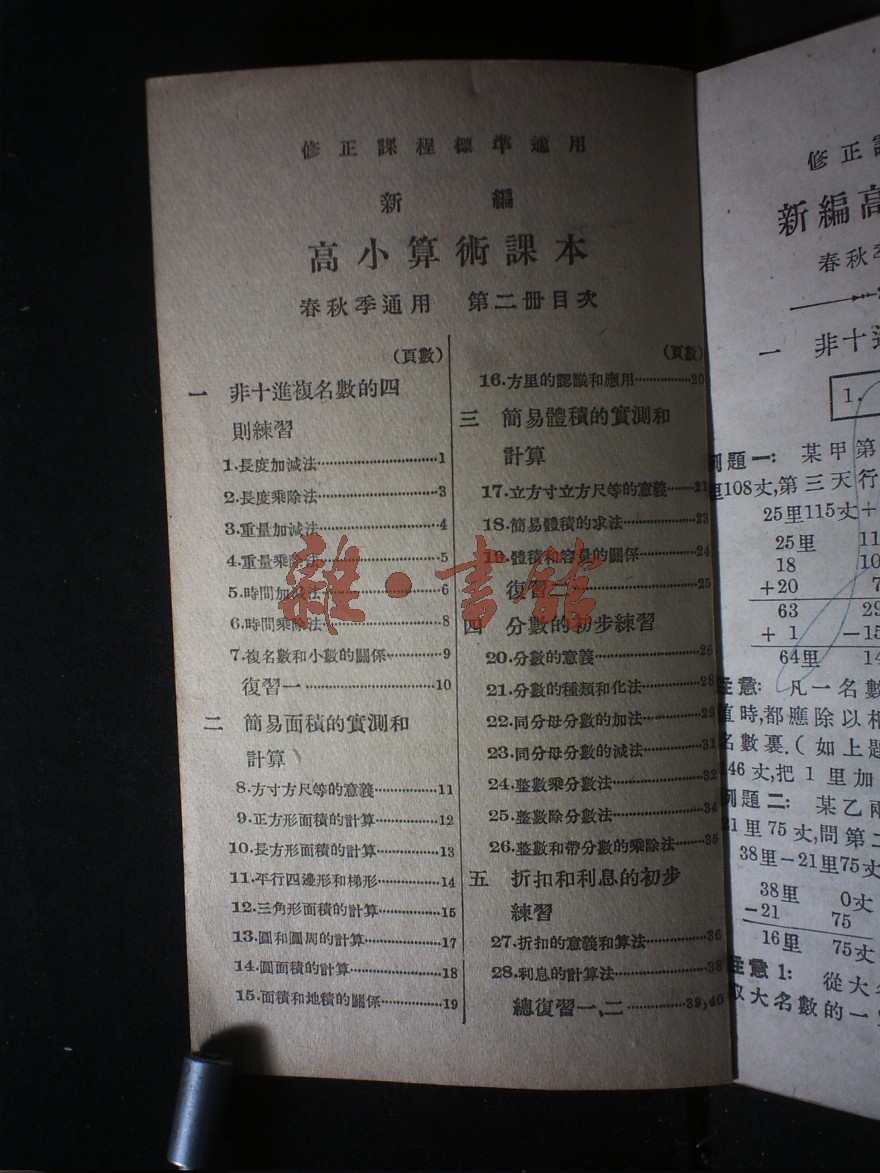 修正課程標準適用
新編
高小算術課本
春秋季通用 第二冊目次
(頁數)
一 非十進複名數的四
則練習
1.長度加減法……1
2.長度乘除法……3
3.重量加減法……4
4.重量乘除法……5
5.時間加減法……6
6.時間乘除法……8
7.複名數和小數的關係……9
復習一……10
二 簡易面積的實測和
計算
8.方寸方尺等的意義……11
9.正方形面積的計算……12
10.長方形面積的計算……13
11.平行四邊形和梯形……14
12.三角形面積的計算……15
13.圓和圓周的計算……17
14.圓面積的計算……18
15.面積和地積的關係……19
(頁數)
16.方里的認識和應用……20
三 簡易體積的實測和
計算
17.立方寸立方尺等的意義……21
18.簡易體積的求法……23
19.體積和容量的關係……24
復習二……25
四 分數的初步練習
20.分數的意義……26
21.分數的種類和化法……28
22.同分母分數的加法……29
23.同分母分數的減法……31
24.整數乘分數法……32
25.整數除分數法……34
26.整數和帶分數的乘除法……35
五 折扣和利息的初步
練習
27.折扣的意義和算法……36
28.利息的計算法……38
總復習一、二……39,40
雜·書館
修正
新編高
春秋季
一 非十進
1.
例題一: 某甲第
里108丈,第三天行
25里115丈+
25里 11
18 10
+20 7
63 29
+ 1 －15
64里 14
注意: 凡一名數
值時,都應除以相
名數裏.(如上題
146丈,把1里加
例題二: 某乙兩
21里75丈,問第二
38里－21里75丈
38里 0丈
－21 75
16里 75丈
注意1: 從大名
取大名數的一